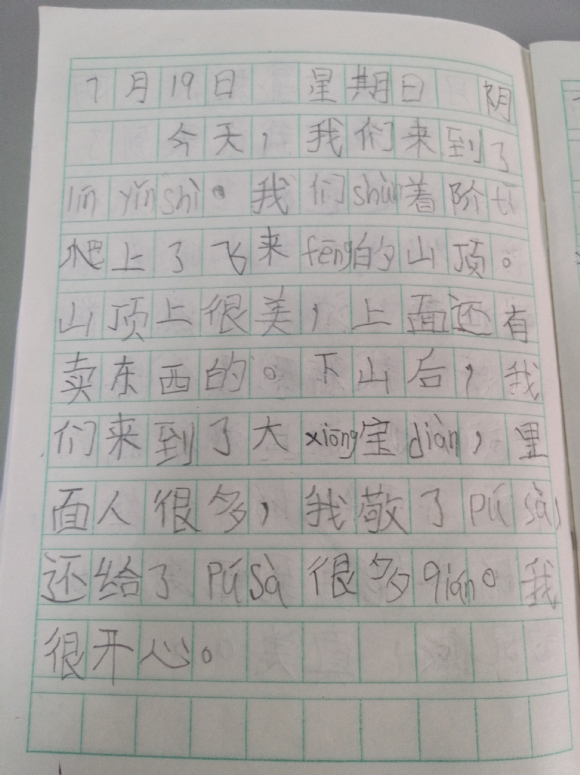 7月19日 星期日 阴
今天，我们来到了
lín yǐn shì。我们shùn着阶tī
爬上了飞来fēng的山顶。
山顶上很美，上面还有
卖东西的。下山后，我
们来到了大xióng宝diàn，里
面人很多，我敬了pú sà，
还给了pú sà很多qián。我
很开心。